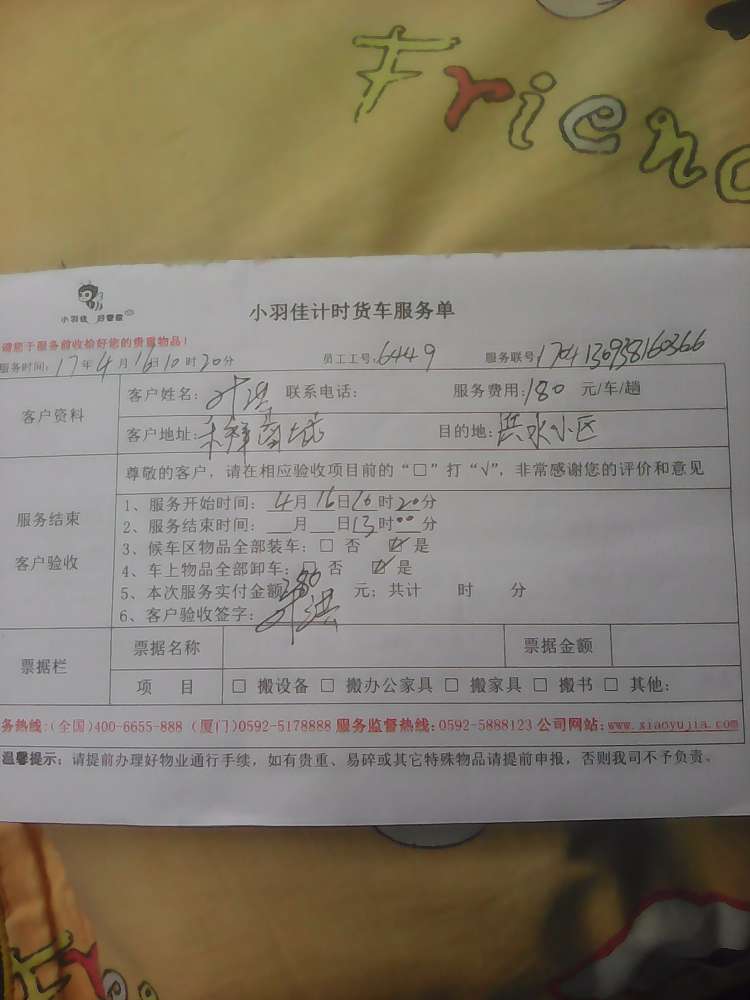 Frien
小羽佳 好管家
小羽佳计时货车服务单
请您于服务前收捡好您的贵重物品!
服务时间: 17年4月16日10时20分 员工工号: 6449 服务联号: 1704130938160366
客户资料
客户姓名: 叶洪 联系电话: 服务费用: 180 元/车/趟
客户地址: 目的地: 洪水小区
尊敬的客户,请在相应验收项目前的“□”打“√”,非常感谢您的评价和意见
服务结束
客户验收
1、服务开始时间: 4月16日10时20分
2、服务结束时间: 月 日13时00分
3、候车区物品全部装车: □ 否 ☑ 是
4、车上物品全部卸车: □ 否 ☑ 是
5、本次服务实付金额 280 元; 共计 时 分
6、客户验收签字: 叶洪
票据栏
票据名称 票据金额
项 目 □ 搬设备 □ 搬办公家具 □ 搬家具 □ 搬书 □ 其他:
务热线:(全国)400-6655-888 (厦门)0592-5178888 服务监督热线:0592-5888123 公司网站:www.xiaoyujia.com
温馨提示: 请提前办理好物业通行手续,如有贵重、易碎或其它特殊物品请提前申报,否则我司不予负责。